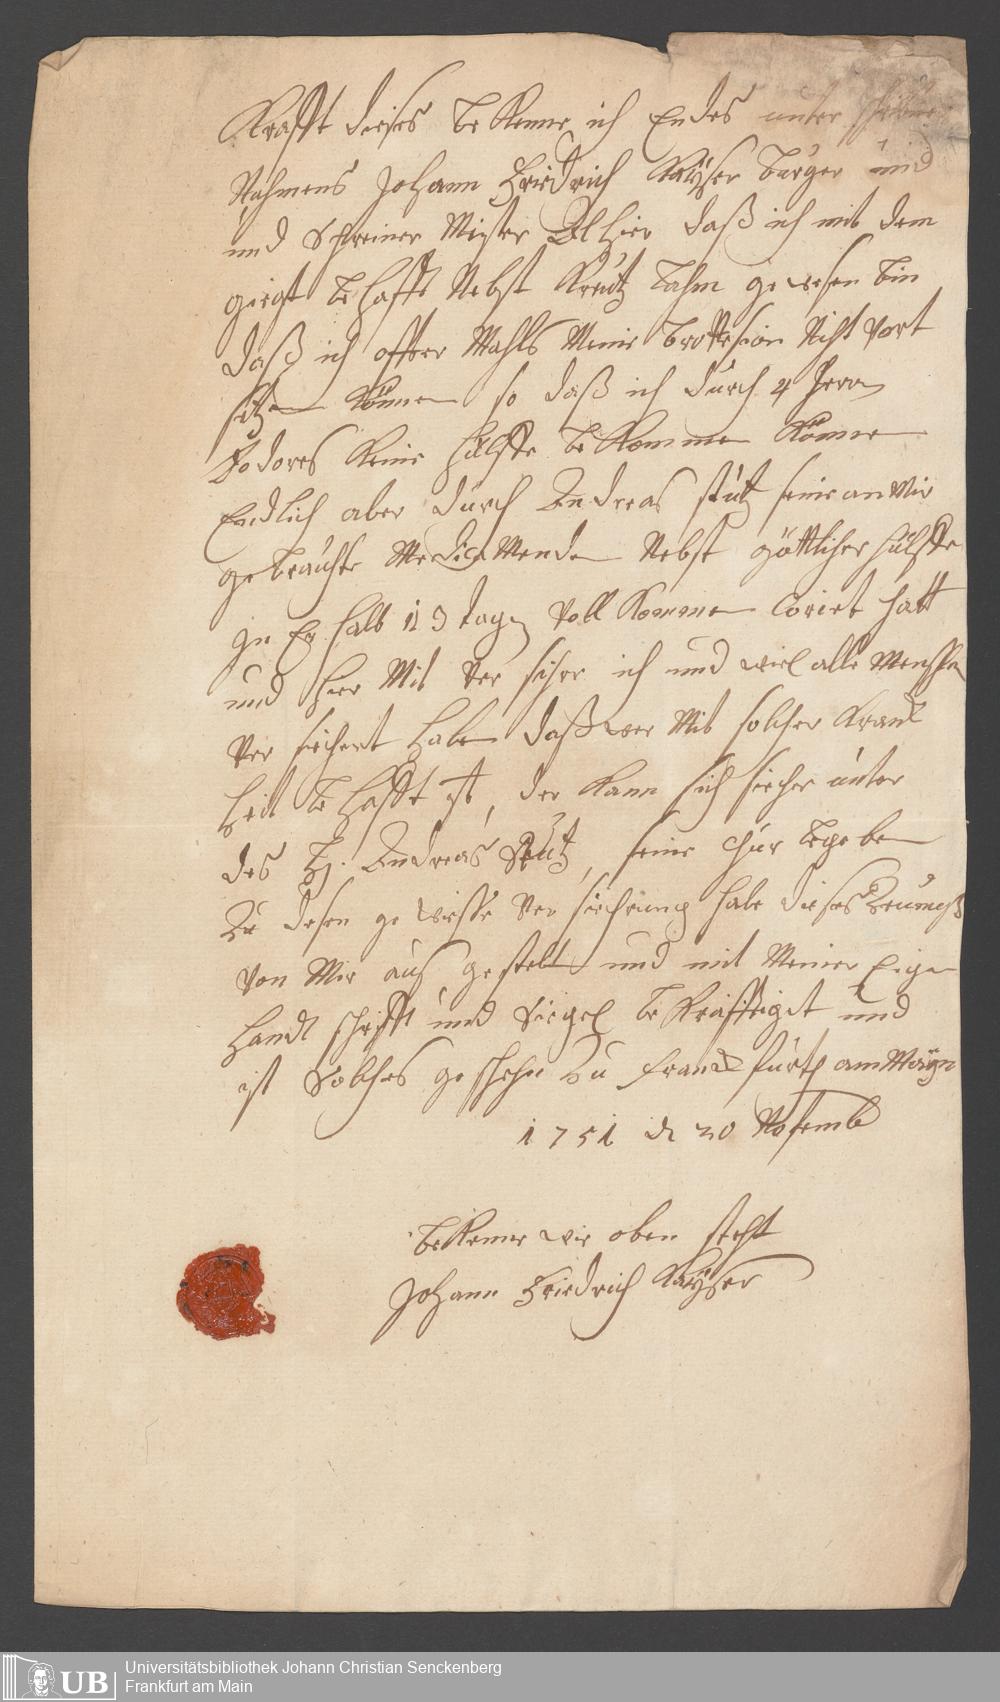 Krafft dieses be Kenne ich Endes unter
Nahmens Johann Friedrich Kaÿser burger und
und Schreiner Meister Al hier daß ich mit dem
giegt be hafft Nebst Kreutz lahm ge wesen bin
daß ich offter Mahls Meine brofesion Nicht vort
setzen Könne so daß ich durch 4 herrn
Dodores Keine hülffe be Kommen Könne
Endlich aber durch Andreas stutz seine an Mir
gebrauchte Medica Menden Nebst göttlicher hülffe
in halb 13 tagen voll Kommen Corirt hatt
und hier Mit ver sicher ich und wiel alle Menschen
ver sichert haben daß wer Mit solcher Kranck
heit be hafft ist, der Kann sich sicher unter
des H. Andreas Stutz, seine Chur begeben
Zu desen ge wisse ver sicherung habe dieses Zeucniß
von Mir aus gestelt und mit Meiner Eigen
handt schrifft und Siegel be Kräfftiget und
ist Solches geschehen Zu Franckfurth am Maÿn
1751 d 20 Nofemb
beKenne wie oben steht
Johann Friedrich Kaÿser
UB
Universitätsbibliothek Johann Christian Senckenberg
Frankfurt am Main